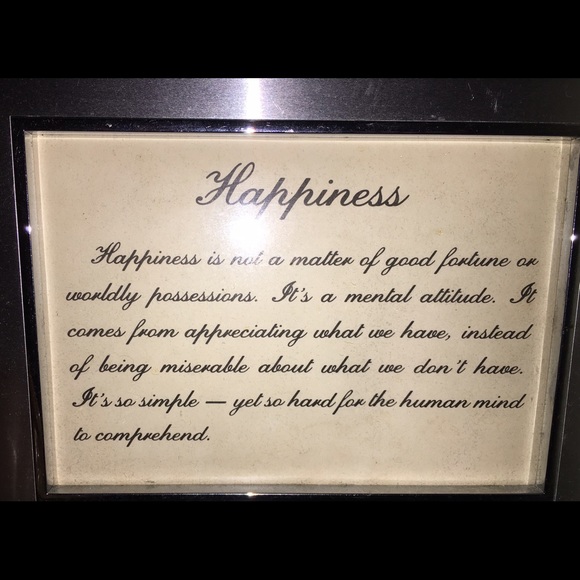 Happiness
Happiness is not a matter of good fortune or
worldly possessions. It's a mental attitude. It
comes from appreciating what we have, instead
of being miserable about what we don't have.
It's so simple — yet so hard for the human mind
to comprehend.